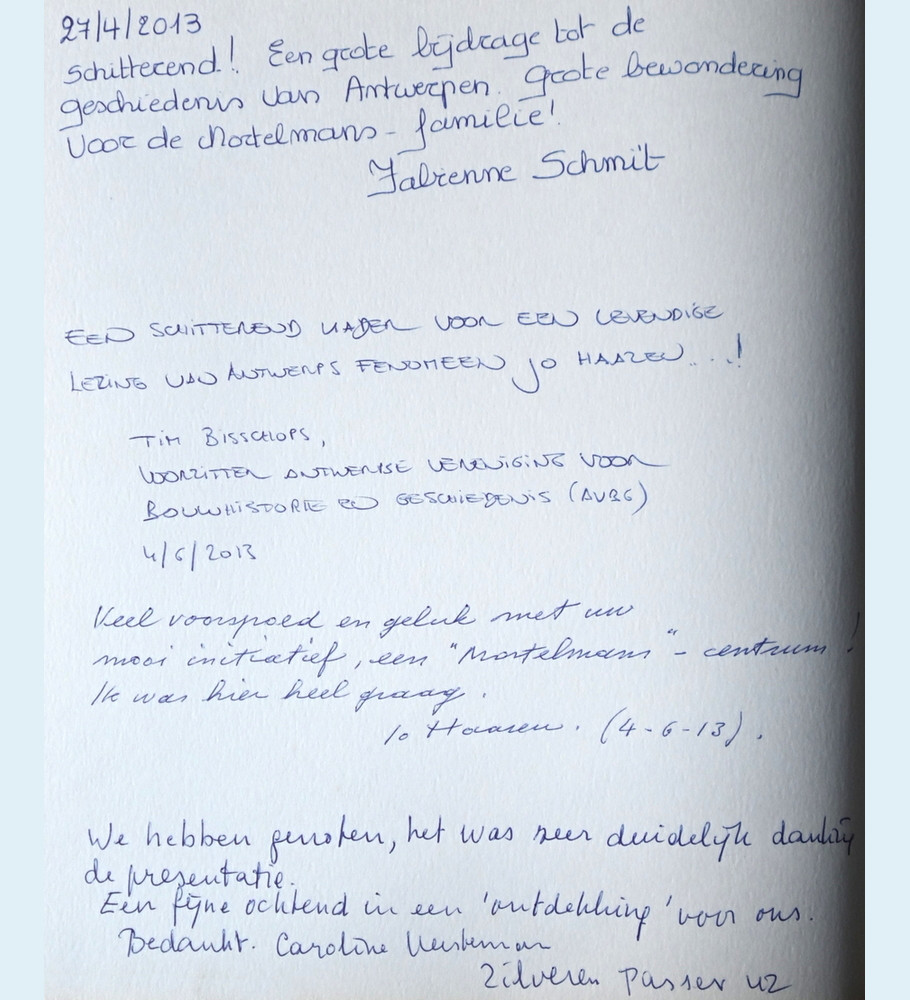 27/4/2013
Schitterend! Een grote bijdrage tot de
geschiedenis van Antwerpen. Grote bewondering
voor de Mortelmans-familie!
Fabienne Schmit
EEN SCHITTEREND KADER VOOR EEN LEVENDIGE
LEZING VAN ANTWERPS FENOMEEN JO HAAZEN...!
TIM BISSCHOPS,
VOORZITTER ANTWERPSE VERENIGING VOOR
BOUWHISTORIE EN GESCHIEDENIS (AVBG)
4/6/2013
Veel voorspoed en geluk met uw
mooi initiatief, een "Mortelmans"-centrum!
Ik was hier heel graag.
Jo Haazen. (4-6-13).
We hebben genoten, het was zeer duidelijk dankzij
de presentatie.
Een fijne ochtend in een 'ontdekking' voor ons.
Bedankt. Caroline
Zilveren Passer